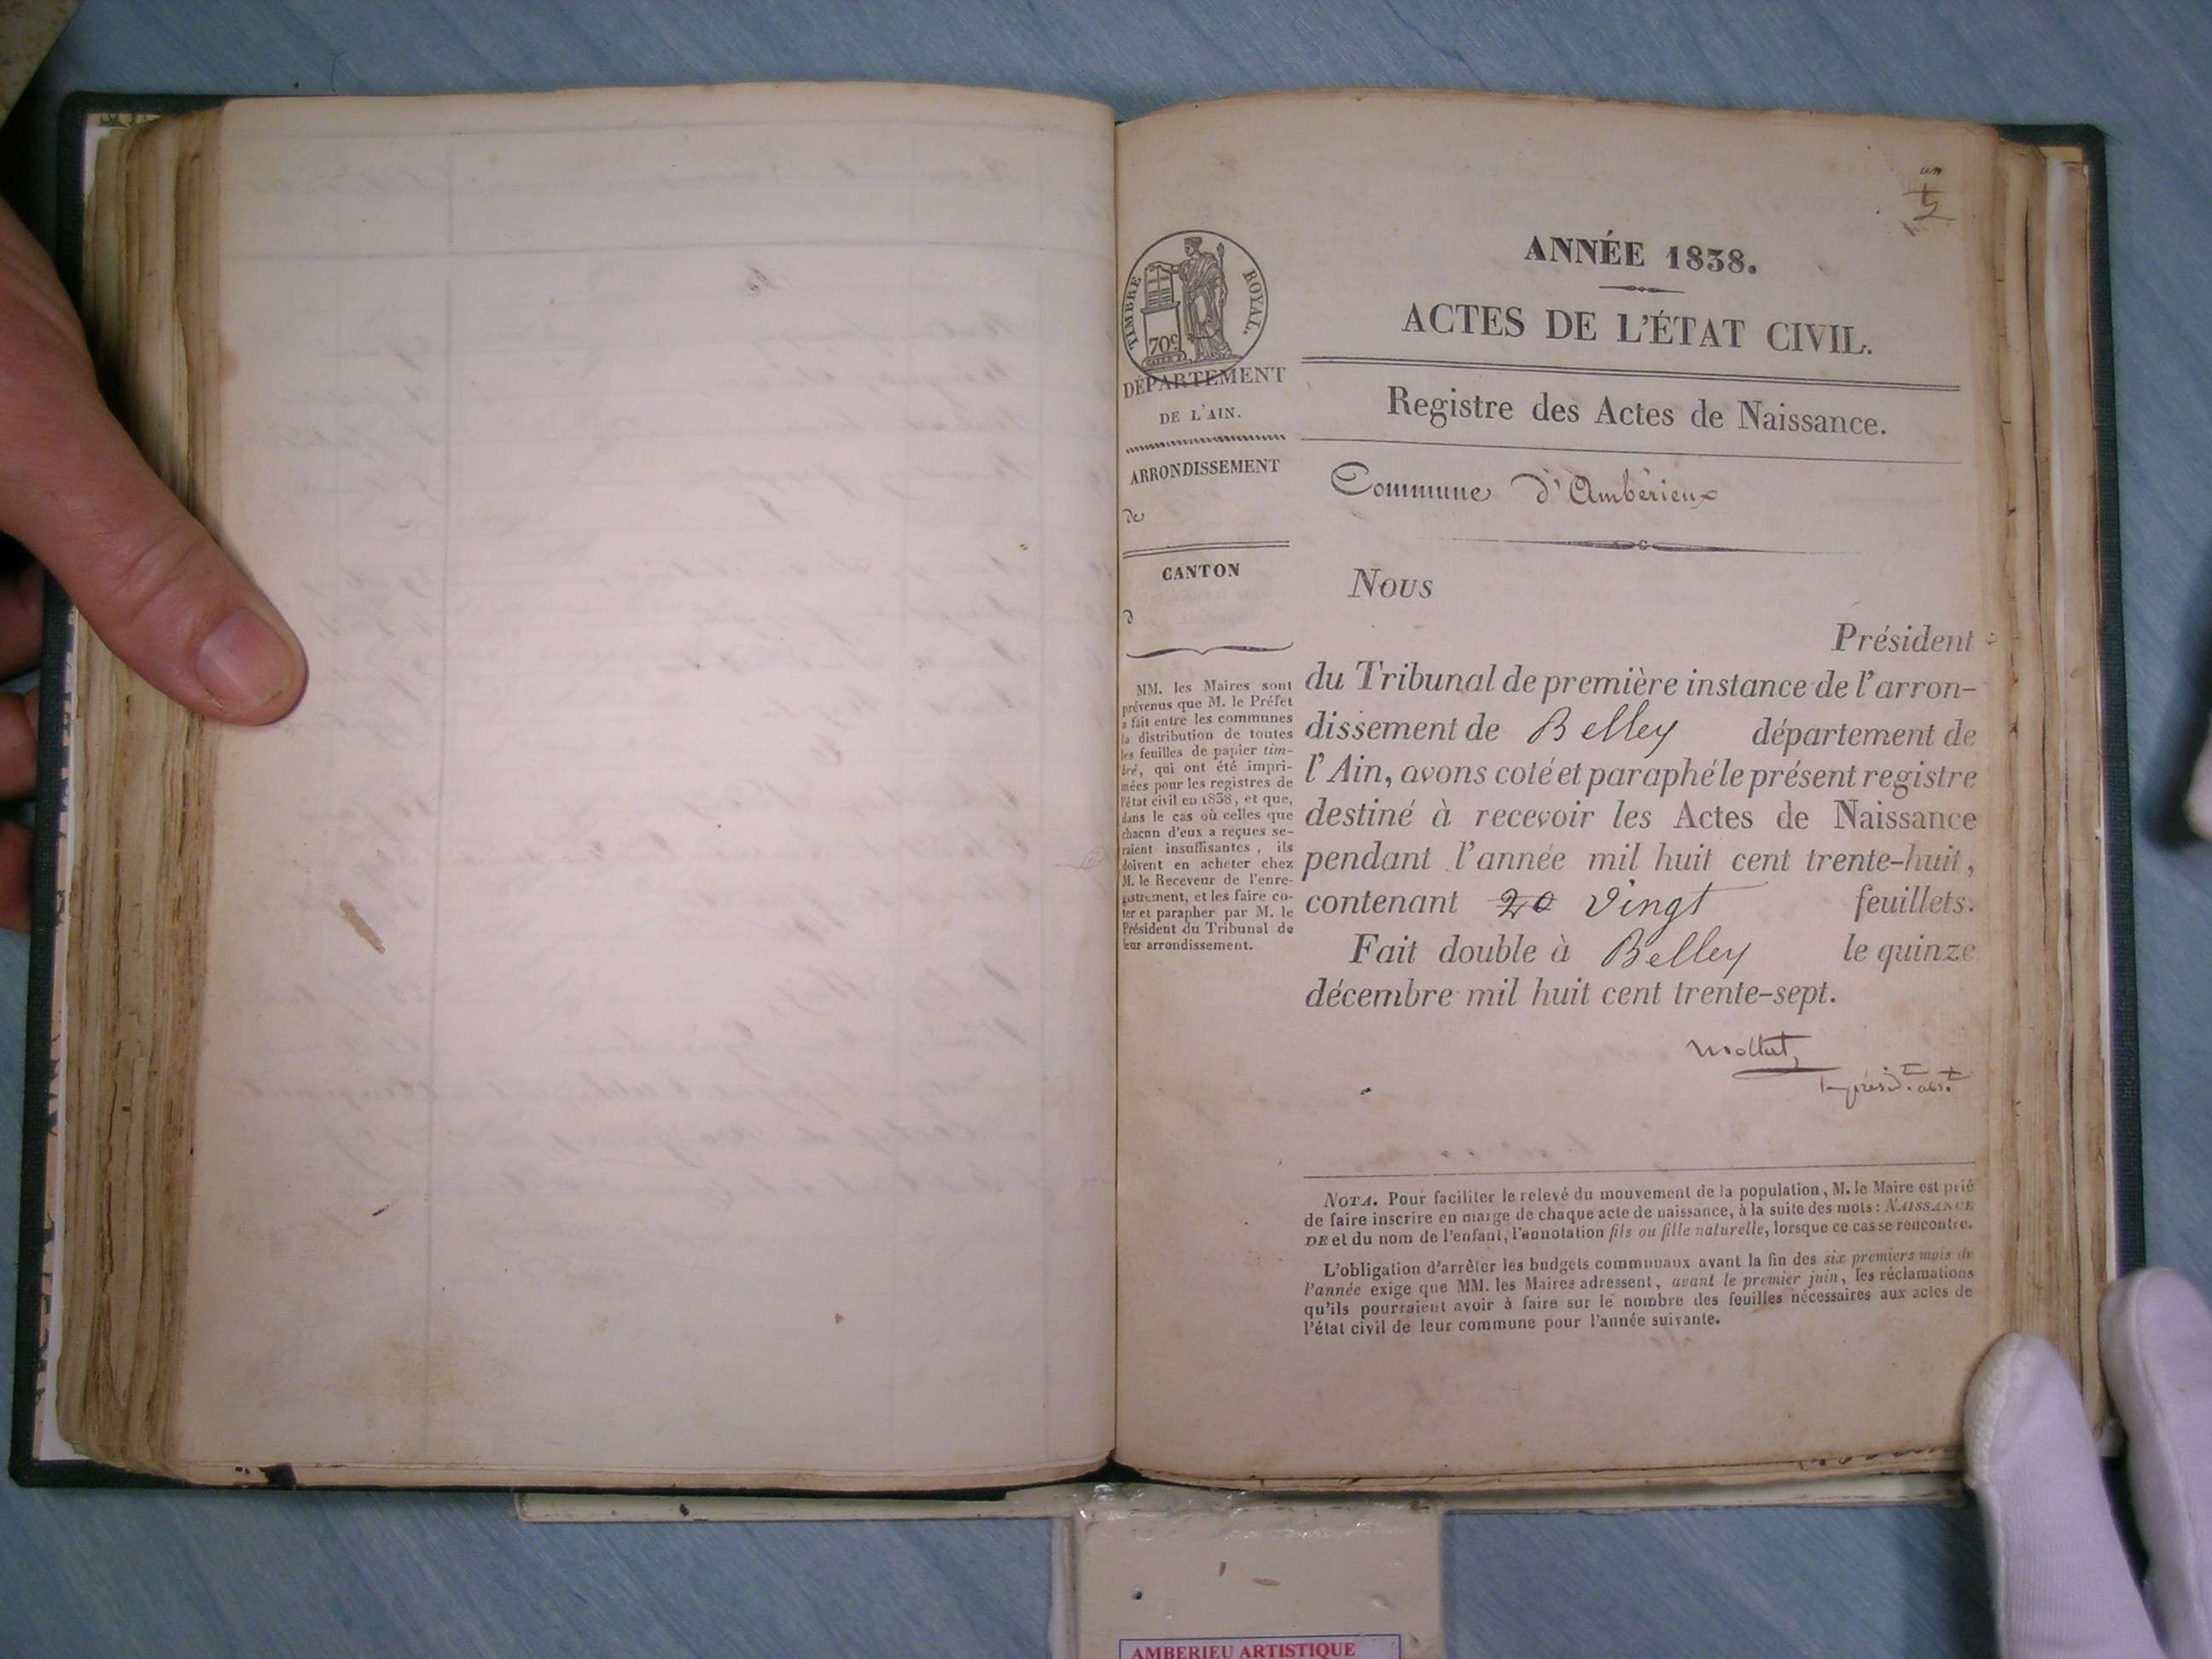 un
ANNÉE 1838.
ACTES DE L'ÉTAT CIVIL.
Registre des Actes de Naissance.
Commune d'Ambérieux
TIMBRE ROYAL.
70c
DÉPARTEMENT
DE L'AIN.
ARRONDISSEMENT
de
CANTON
d
MM. les Maires sont
prévenus que M. le Préfet
a fait entre les communes
la distribution de toutes
les feuilles de papier tim-
bré, qui ont été impri-
mées pour les registres de
l'état civil en 1838, et que,
dans le cas où celles que
chacun d'eux a reçues se-
raient insuffisantes, ils
doivent en acheter chez
M. le Receveur de l'enre-
gistrement, et les faire co-
ter et parapher par M. le
Président du Tribunal de
leur arrondissement.
Nous
Président
du Tribunal de première instance de l'arron-
dissement de Belley département de
l'Ain, avons coté et paraphé le présent registre
destiné à recevoir les Actes de Naissance
pendant l'année mil huit cent trente-huit,
contenant 20 Vingt feuillets.
Fait double à Belley le quinze
décembre mil huit cent trente-sept.
NOTA. Pour faciliter le relevé du mouvement de la population, M. le Maire est prié
de faire inscrire en marge de chaque acte de naissance, à la suite des mots : NAISSANCE
DE et du nom de l'enfant, l'annotation fils ou fille naturelle, lorsque ce cas se rencontre.
L'obligation d'arrêter les budgets communaux avant la fin des six premiers mois de
l'année exige que MM. les Maires adressent, avant le premier juin, les réclamations
qu'ils pourraient avoir à faire sur le nombre des feuilles nécessaires aux actes de
l'état civil de leur commune pour l'année suivante.
AMBERIEU ARTISTIQUE